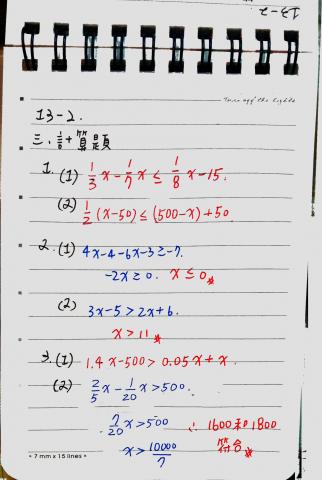 13-2
Turn off the lights
13-2.
三、計算題
1. (1) 1/3 x - 1/7 x ≤ 1/8 x - 15.
(2) 1/2 (x-50) ≤ (500-x) + 50
2. (1) 4x-4-6x-3 ≥ -7.
-2x ≥ 0. x ≤ 0 *
(2) 3x-5 > 2x+6.
x > 11 *
3. (1) 1.4x-500 > 0.05x + x.
(2) 2/5 x - 1/20 x > 500.
7/20 x > 500 ∴ 1600和1800
x > 10000/7 符合 *
7 mm x 15 lines